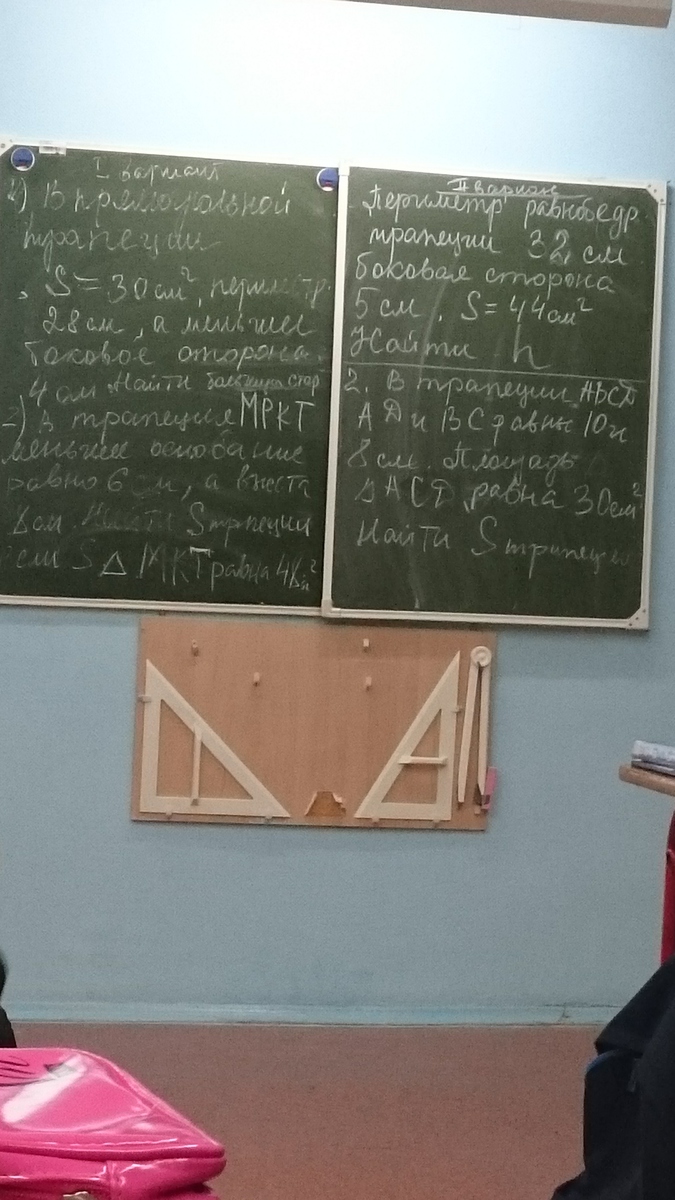 I вариант
1) В прямоугольной
трапеции
, S = 30 см², периметр
28 см, а меньшее
боковое сторона
4 см Найти большую стор
2) В трапеция МРКТ
меньшее основание
равно 6 см, а высота
8 см. Найти Sтрпеции
если S △ МКТ равна 48 см²
II вариан
Периметр равнобедр.
трапеции 32 см
боковая сторона
5 см, S = 44 см²
Найти h
2. В трапеции АВСD
АD и ВС равны 10 и
8 см. Площадь
△ АСD равна 30 см²
Найти Sтрапеции